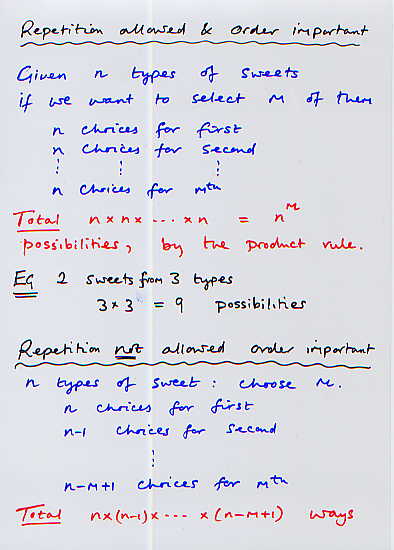 Repetition allowed & order important
Given n types of sweets
if we want to select M of them
n choices for first
n choices for second
⋮ ⋮ ⋮
n choices for mth
Total n×n× ... ×n = n^M
possibilities, by the product rule.
EG 2 sweets from 3 types
3×3 = 9 possibilities
Repetition not allowed order important
n types of sweet : choose M.
n choices for first
n-1 choices for second
⋮
n-M+1 choices for Mth
Total n×(n-1)× ... ×(n-M+1) ways